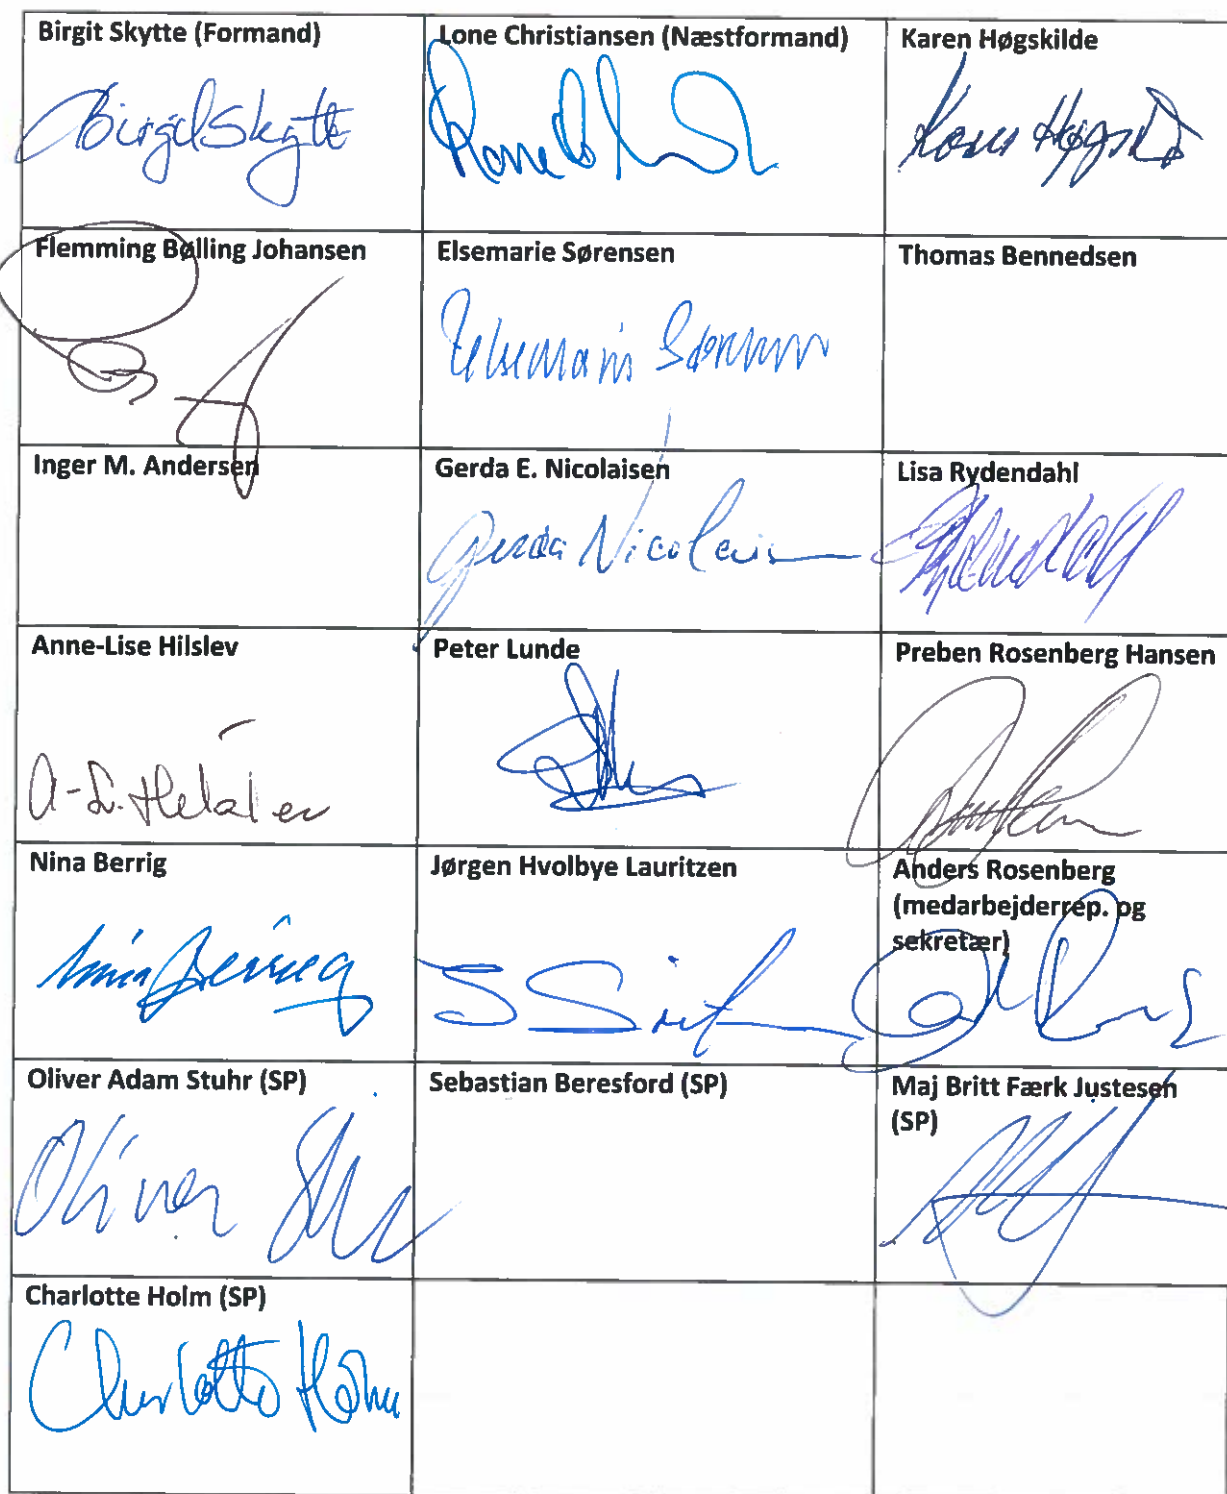 Birgit Skytte (Formand)
Birgit Skytte
Lone Christiansen (Næstformand)
Karen Høgskilde
Flemming Bølling Johansen
Elsemarie Sørensen
Elsemarie Sørensen
Thomas Bennedsen
Inger M. Andersen
Gerda E. Nicolaisen
Gerda Nicolaisen
Lisa Rydendahl
Anne-Lise Hilslev
Peter Lunde
Preben Rosenberg Hansen
Nina Berrig
Nina Berrig
Jørgen Hvolbye Lauritzen
Anders Rosenberg
(medarbejderrep. og
sekretær)
Oliver Adam Stuhr (SP)
Oliver
Sebastian Beresford (SP)
Maj Britt Færk Justesen
(SP)
Charlotte Holm (SP)
Charlotte Holm